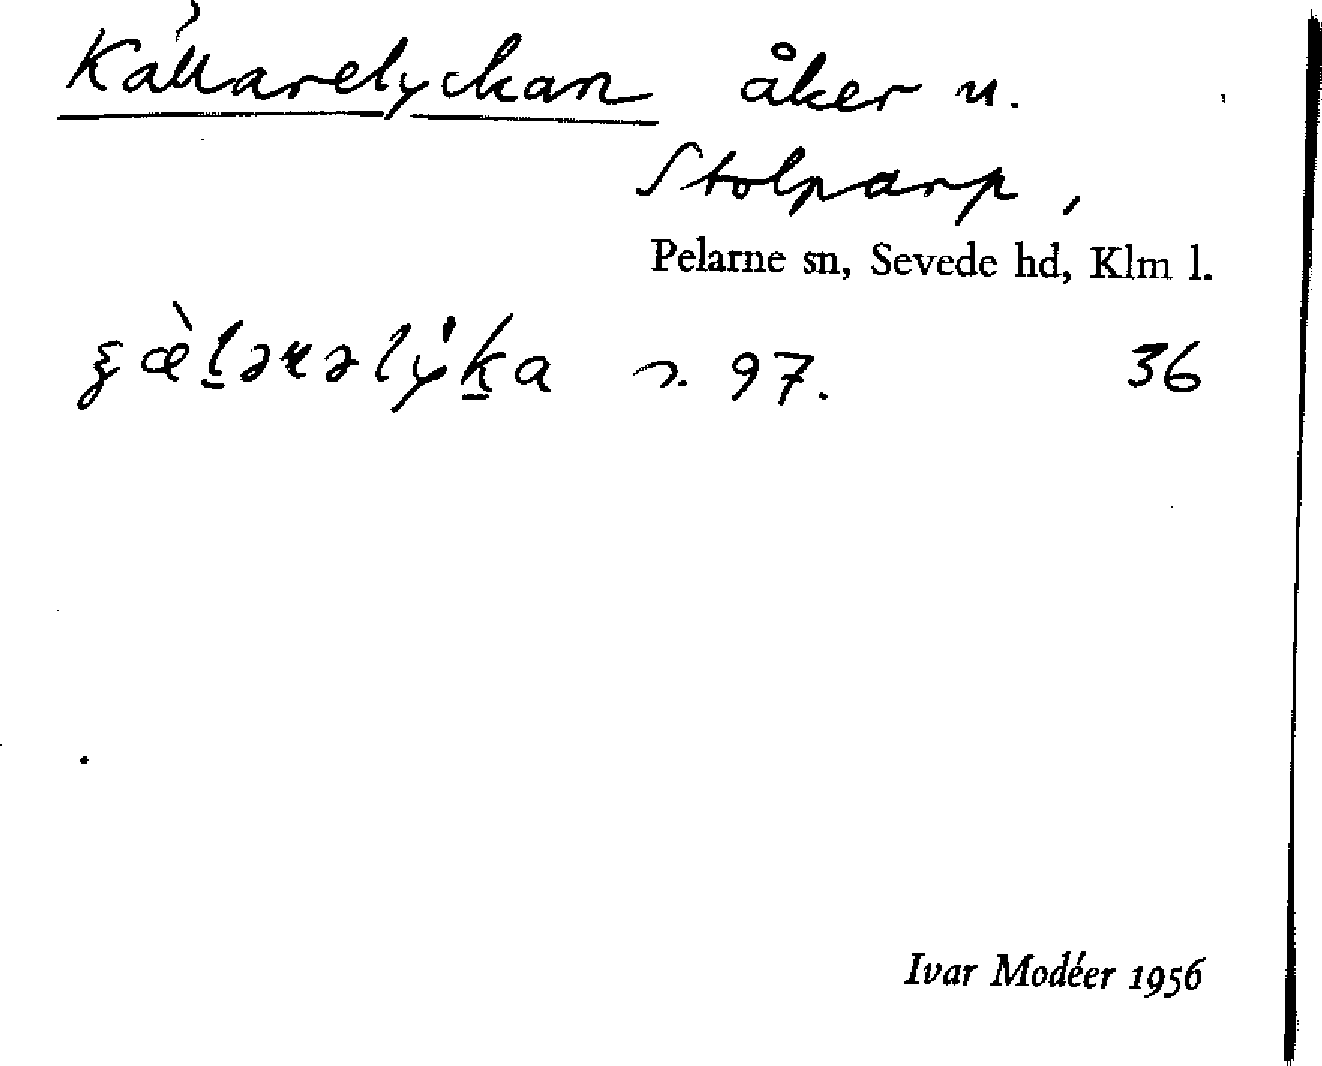 Källarelyckan åker u.
Stolparp,
Pelarne sn, Sevede hd, Klm l.
97. 36
Ivar Modéer 1956